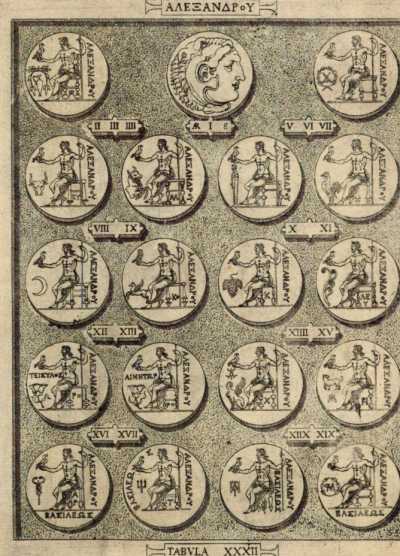 ΑΛΕΞΑΝΔΡΟΥ
ΑΛΕΞΑΝΔΡΟΥ
ΑΛΕΞΑΝΔΡΟΥ
II III IIII
Ж I E
V VI VII
ΑΛΕΞΑΝΔΡΟΥ
ΑΛΕΞΑΝΔΡΟΥ
ΑΛΕΞΑΝΔΡΟΥ
ΑΛΕΞΑΝΔΡΟΥ
VIII IX
X XI
ΑΛΕΞΑΝΔΡΟΥ
ΑΛΕΞΑΝΔΡΟΥ
ΑΛΕΞΑΝΔΡΟΥ
K
ΑΛΕΞΑΝΔΡΟΥ
XII XIII
XIIII XV
ΑΛΕΞΑΝΔΡΟΥ
ΑΛΕΞΑΝΔΡΟΥ
ΑΛΕΞΑΝΔΡΟΥ
ΑΛΕΞΑΝΔΡΟΥ
XVI XVII
XIIX XIX
ΑΛΕΞΑΝΔΡΟΥ
ΒΑΣΙΛΕΩΣ
ΑΛΕΞΑΝΔΡΟΥ
ΒΑΣΙΛΕΩΣ
ΑΛΕΞΑΝΔΡΟΥ
ΒΑΣΙΛΕΩΣ
ΑΛΕΞΑΝΔΡΟΥ
ΒΑΣΙΛΕΩΣ
TABVLA XXXII